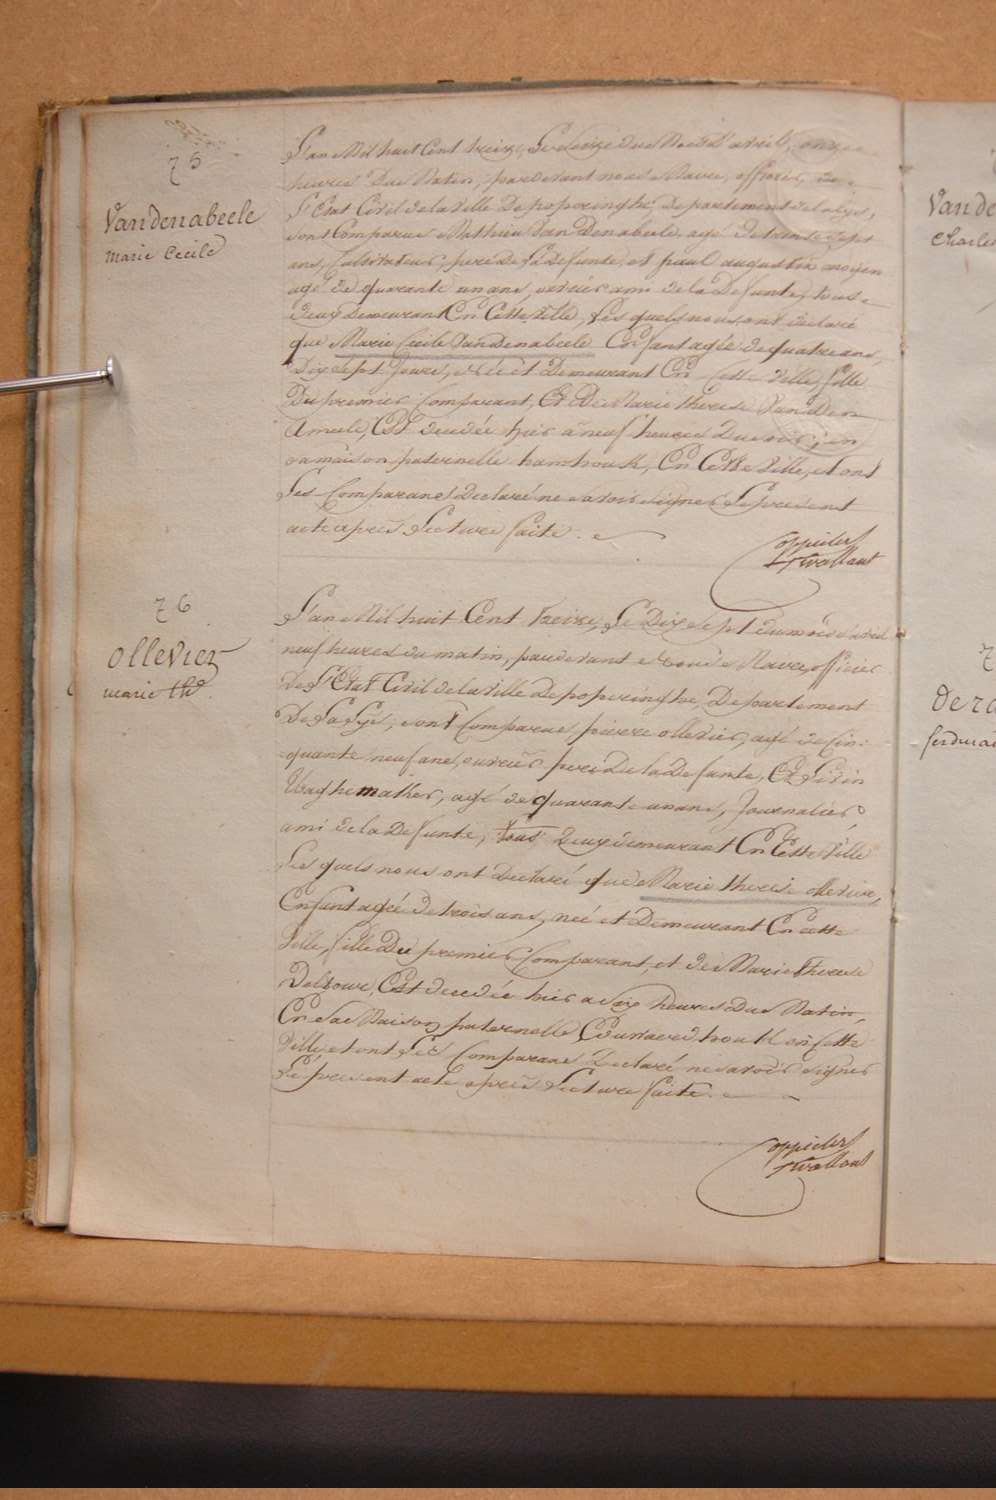 75
Vandenabeele
Marie Cecile
L'an Mil huit Cent treize, Le Seize du Mois d'avril, onze
heures Du Matin, pardevant nous Maire, officier de
L'Etat Civil de la Ville De poperinghe Departement de la Lys,
sont Comparus Mathieu Van Denabeele, agé de trente sept
ans, Cultivateur, pere De La Defunte, et paul augustin moyon
agé de quarante un ans, ouvrier ami de la Defunte, tous
Deux Demeurant En Cette Ville, Les quels nous ont declaré
que Marie Cecile Van Denabeele Enfant agée de quatre ans,
Dix sept Jours, née et Demeurant En Cette Ville fille
Du premier Comparant, Et De Marie therese Van Den
Ameele, Est decedée hier à neuf heures Du soir, en
sa maison paternelle hamhouk, En Cette Ville, et ont
Les Comparans Declaré ne savoir signer Le present
acte après Lecture faite.
76
ollevier
marie the
L'an Mil huit Cent treize, Le Dix sept du mois d'avril
neuf heures du matin, pardevant Nous Maire officier
De L'Etat Civil de la Ville De poperinghe, Departement
De La Lys, sont Comparus pierre ollevier, agé de Cin-
quante neuf ans, ouvrier pere De la Defunte, Et
Waghemaker, agé de quarante un ans, Journalier,
ami de la Defunte, tous Deux demeurant En Cette Ville
Les quels nous ont Declaré que Marie therese ollevier,
Enfant agée De trois ans, née et Demeurant En cette
Ville, fille Du premier Comparant, et De Marie Therese
Est decedée hier a Six heures Du Matin,
En sa Maison paternelle en Cette
Ville, et ont Les Comparans Declaré ne savoir signer
Le present acte après Lecture faite.
Vande
Charles